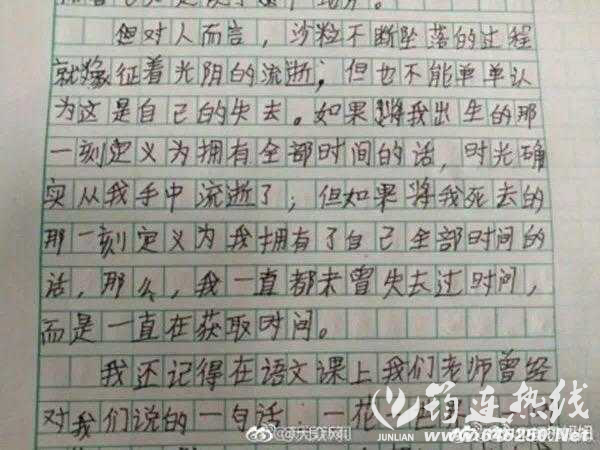 但对人而言，沙粒不断坠落的过程
就像征着光阴的流逝，但也不能单单认
为这是自己的失去。如果将我出生的那
一刻定义为拥有全部时间的话，时光确
实从我手中流逝了；但如果将我死去的
那一刻定义为我拥有了自己全部时间的
话，那么，我一直都未曾失去过时间，
而是一直在获取时间。
我还记得在语文课上我们老师曾经
对我们说的一句话，一花一
筠连热线
JUNLIAN
www.645250.Net